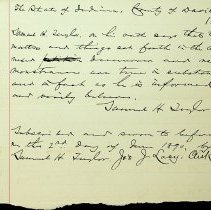 The State of Indiana, County of Davi
Samuel H. Taylor, on his oath says that the
matters and things set forth in the a
and
are true in substance
and in fact as he is informed
and verily believes.
Samuel H Taylor
Subscribed and sworn to befor
me this 2nd day of June 1890, by
Samuel H. Taylor Jos. J. Lacy. Clk